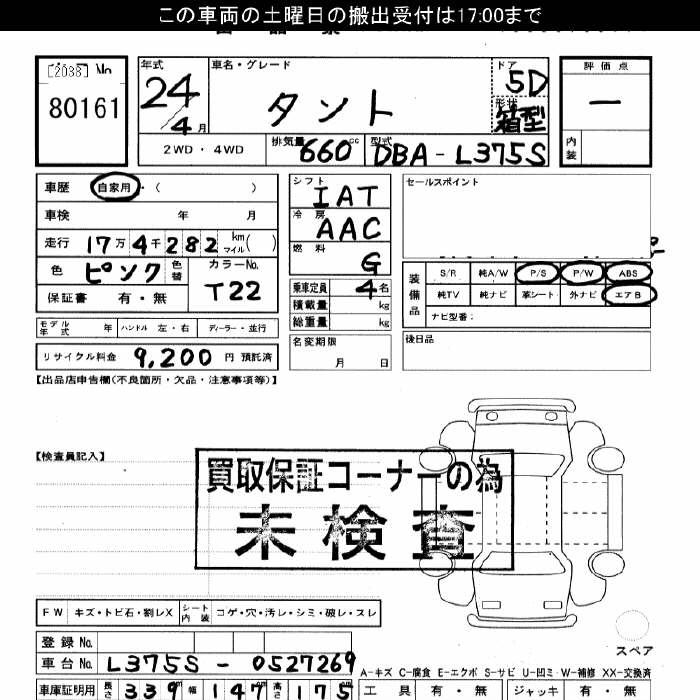 この車両の土曜日の搬出受付は17:00まで
[2038] No
80161
年式 24/4月
車名・グレード タント
ドア 5D
形状 箱型
評価点 ー
内装
2WD・4WD
排気量 660cc
型式 DBA-L375S
車歴 自家用・( )
車検 年 月
走行 17万4千282 km マイル( )
色 ピンク 色替
カラーNo. T22
保証書 有・無
シフト IAT
冷房 AAC
燃料 G
乗車定員 4名
積載量 kg
総重量 kg
セールスポイント
装備品
S/R 純A/W P/S P/W ABS
純TV 純ナビ 革シート 外ナビ エアB
ナビ型番:
モデル年式 年 ハンドル 左・右 ディーラー・並行
名変期限 月 日
後日品
リサイクル料金 9,200 円 預託済
【出品店申告欄(不良箇所・欠品・注意事項等)】
【検査員記入】
買取保証コーナーの為
未検査
FW キズ・トビ石・割レX シート内装 コゲ・穴・汚レ・シミ・破レ・スレ
スペア
登録No.
車台No. L375S-0527269
A-キズ C-腐食 E-エクボ S-サビ U-凹ミ W-補修 XX-交換済
車庫証明用 長さ 339 幅 147 高さ 175
工具 有・無 ジャッキ 有・無